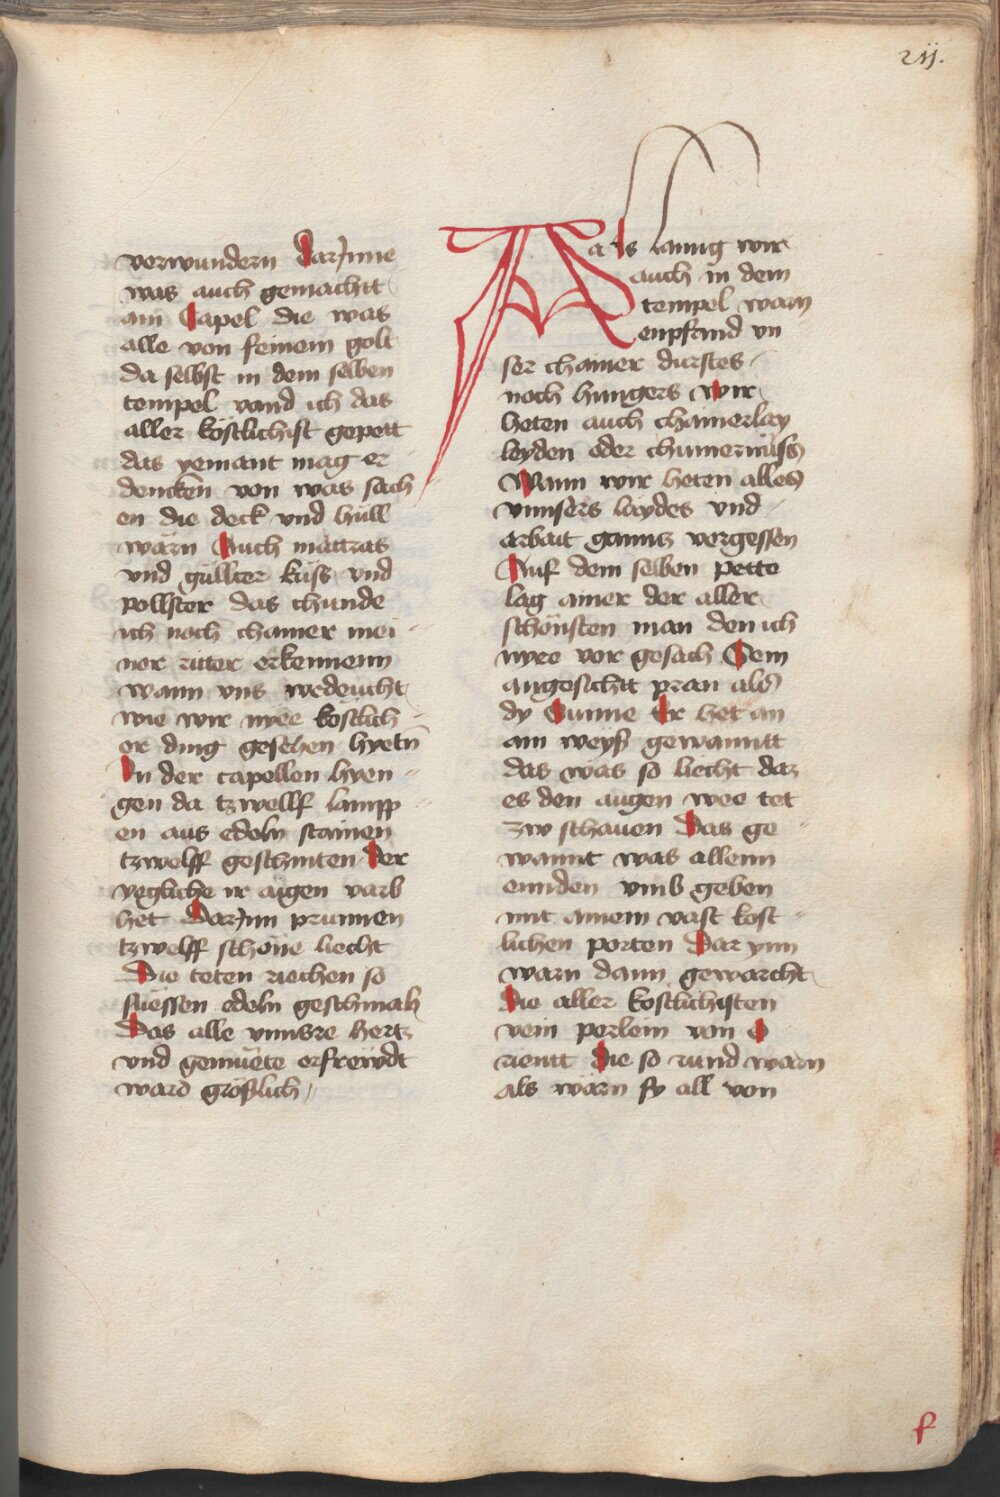 211.
verwundern Darjnne
was auch gemachtt
ain Capel die was
alle von feinem golt
da selbst in dem selben
tempel vand ich das
aller köstlichist gepett
das yemant mag er
dencken von was sach
en die deck vnd hüll
wärn Auch mattras
vnd gullter küss vnd
pollster das chunde
ich noch chainer mei
ner ritter erkennenn
wann vns wedeucht
wie wir nyee köstlich
er ding gesehen hyetn
In der capellen hyen
gen da tzwellf lampp
en aus edeln stainen
tzwelff geschniten Der
yegliche ir aigen varb
het Darjnn prunnen
tzwelff schöne liecht
Die teten riechen so
süessen edeln geschmah
Das alle vnnsre hertz
vnd gemüete erfrewdt
ward gröslich
Als lanng wir
auch in dem
tempel warn
enpfand vn
ser chainer durstes
noch hungers Wir
heten auch chainerlay
leyden oder chumernüss
Wann wir heten alles
vnnsers laydes vnd
arbait gantz vergessen
Auf dem selben pette
lag ainer der aller
schönsten man den ich
nyee vor gesach Sein
angesichtt pran als
dy Sunne Er het an
ain weyß gewanntt
das was so liecht daz
es den augen wee tet
zw schauen Das ge
wannt was allenn
ennden vmb geben
mit ainem vast kost
lichen porten Dar ynn
warn dann gewarcht
Die aller kostlichisten
vein perlein von O
rientt Die so rund warn
als wärn sy all von
f